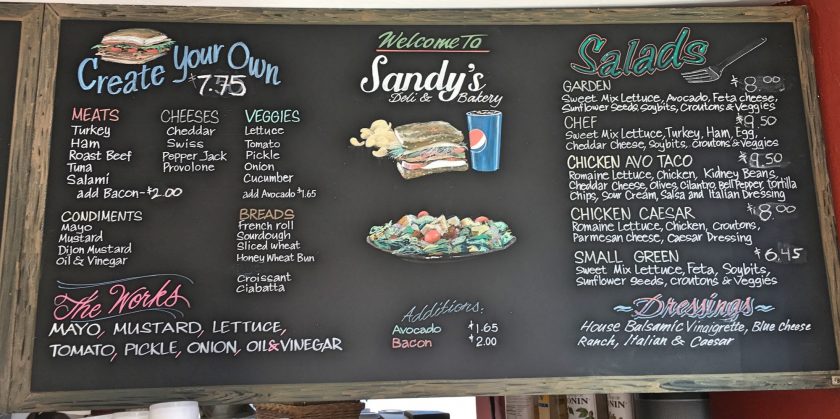 Create Your Own
$7.75
MEATS
Turkey
Ham
Roast Beef
Tuna
Salami
add Bacon-$2.00
CHEESES
Cheddar
Swiss
Pepper Jack
Provolone
VEGGIES
Lettuce
Tomato
Pickle
Onion
Cucumber
add Avocado $1.65
CONDIMENTS
Mayo
Mustard
Dijon Mustard
Oil & Vinegar
BREADS
French roll
Sourdough
Sliced wheat
Honey Wheat Bun
Croissant
Ciabatta
The Works
MAYO, MUSTARD, LETTUCE,
TOMATO, PICKLE, ONION, OIL&VINEGAR
Welcome To
Sandy's
Deli & Bakery
Additions:
Avocado $1.65
Bacon $2.00
Salads
GARDEN $8.00
Sweet Mix Lettuce, Avocado, Feta cheese,
Sunflower Seeds, Soybits, Croutons & Veggies
CHEF $9.50
Sweet Mix Lettuce, Turkey, Ham, Egg,
Cheddar Cheese, Soybits, croutons & Veggies
CHICKEN AVO TACO $9.50
Romaine Lettuce, Chicken, Kidney Beans,
Cheddar Cheese, Olives, cilantro, Bell Pepper, Tortilla
Chips, Sour Cream, Salsa and Italian Dressing
CHICKEN CAESAR $8.00
Romaine Lettuce, Chicken, Croutons,
Parmesan cheese, Caesar Dressing
SMALL GREEN $6.45
Sweet Mix Lettuce, Feta, Soybits,
Sunflower Seeds, croutons & Veggies
~Dressings~
House Balsamic Vinaigrette, Blue cheese
Ranch, Italian & Caesar